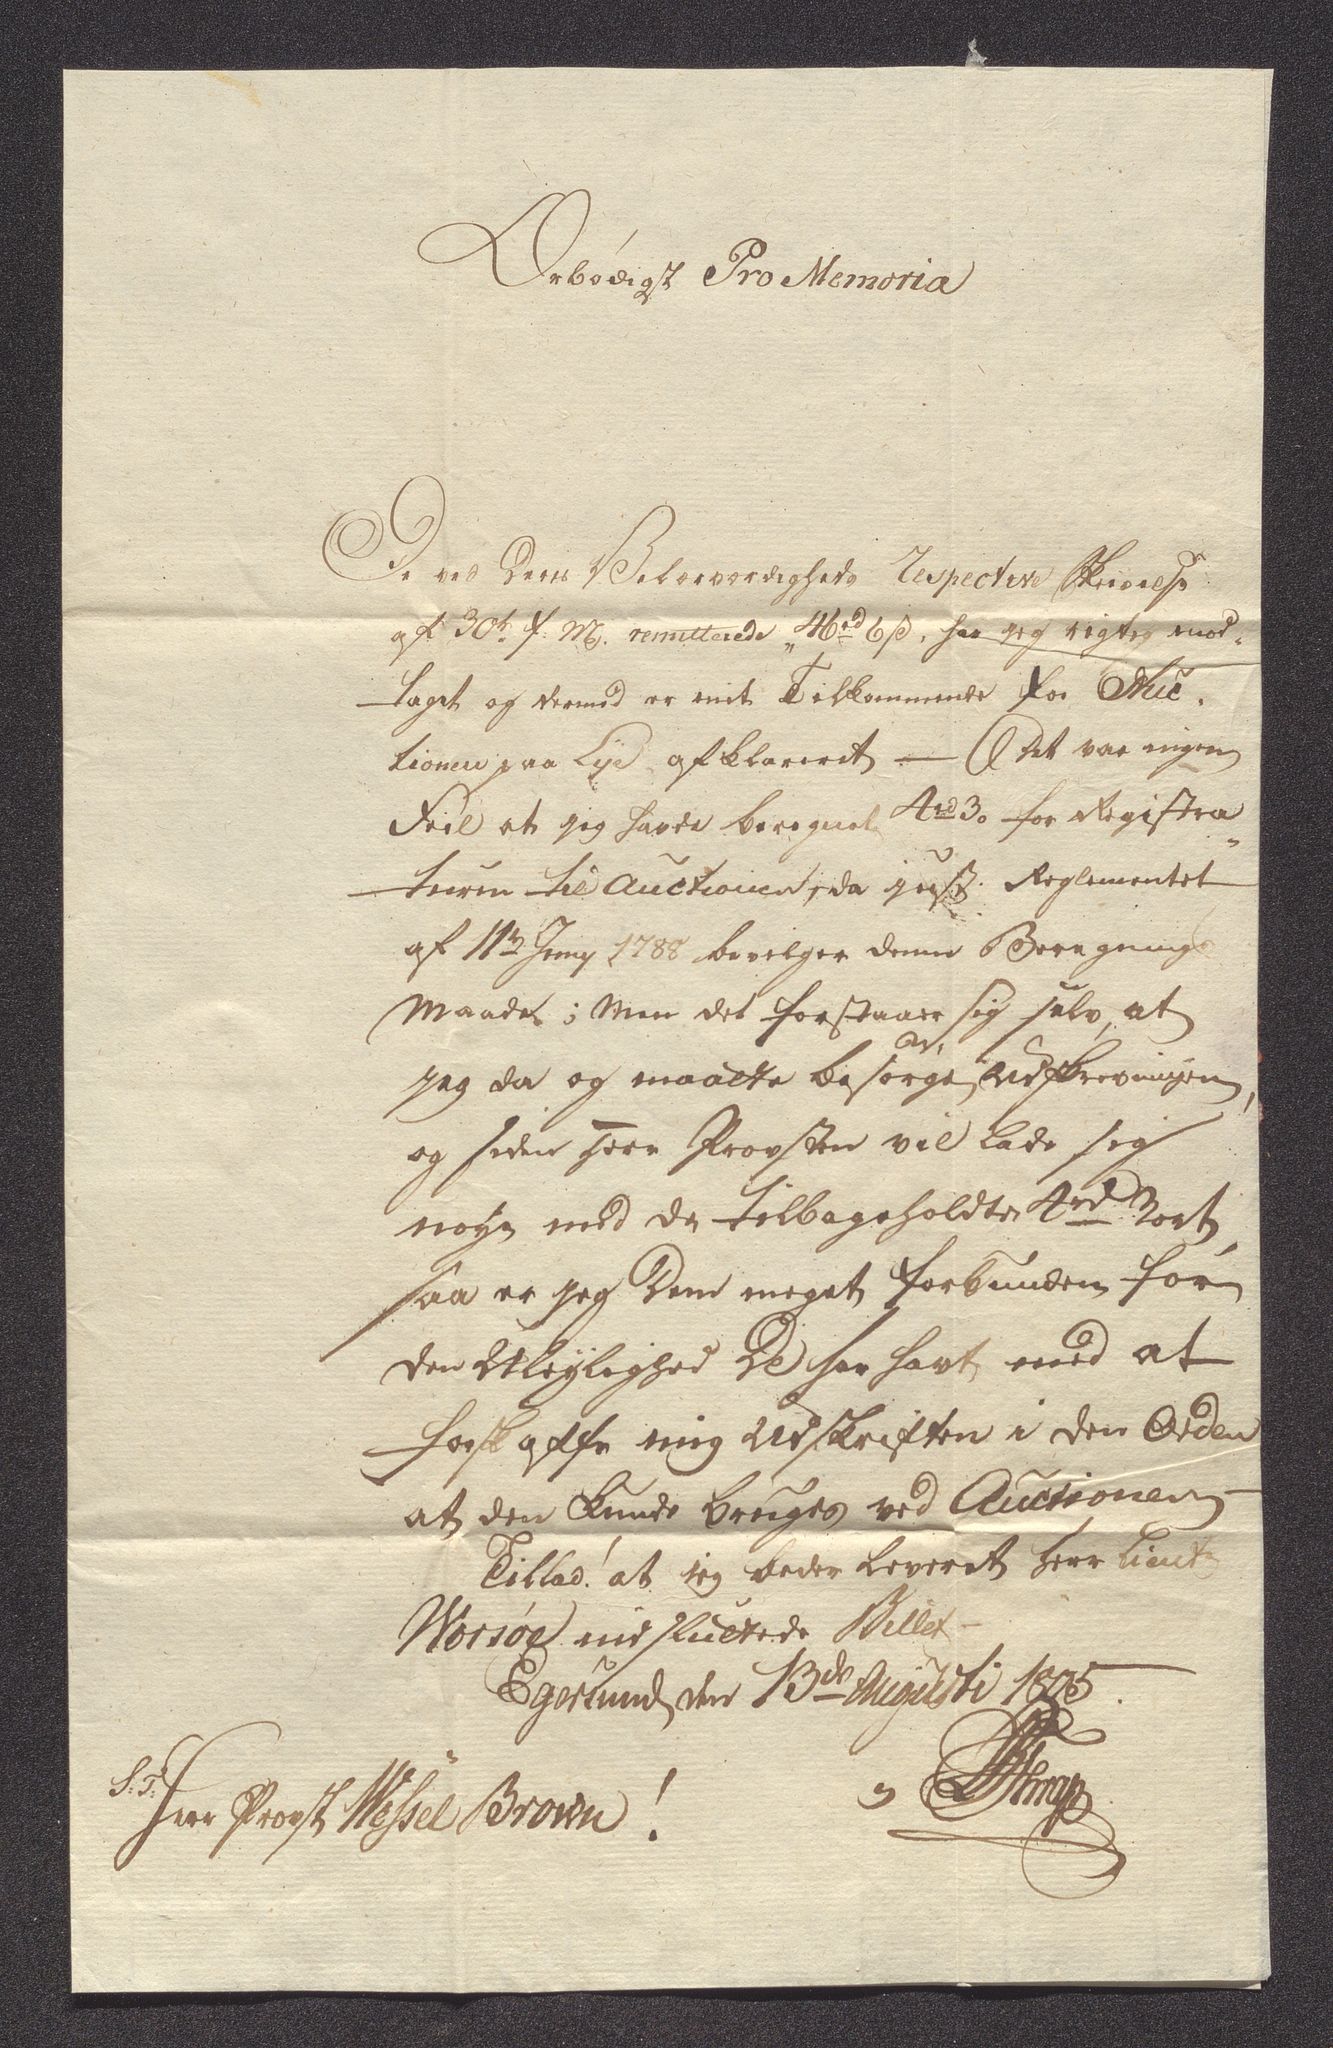 Ærbødigst Pro Memoria
De ved Deres Velærværdigheds respective Skrivelse
af 30te f. M. remitterede 46rd 6ß, har jeg rigtig mod-
taget og dermed er mit Tilkommende for Auc-
tionen paa Lye afklareret — Det var ingen
Feil at jeg havde beregnet 4rd 3o for Registra-
turen til Auctionen, da just Reglementet
af 11te Jeny 1788 bevilger denne Beregnings
Maade; Men det forstaaer sig selv, at
jeg da og maatte besørge Udskrevningen,
og siden Herr Provsten vil lade sig
nøye med de tilbageholdte 4rd 3ort,
saa er jeg Dem meget forbunden for
den Uleylighed De har havt med at
forskaffe mig Udskriften i den Orden
at den kunde bruges ved Auctionen
Tillad! at jeg beder leveret Herr Lieut:
Worsøe indsluttede Billet —
Egersund den 13de Augusti 1805.
S. T. Herr Provst Wessel Brown!